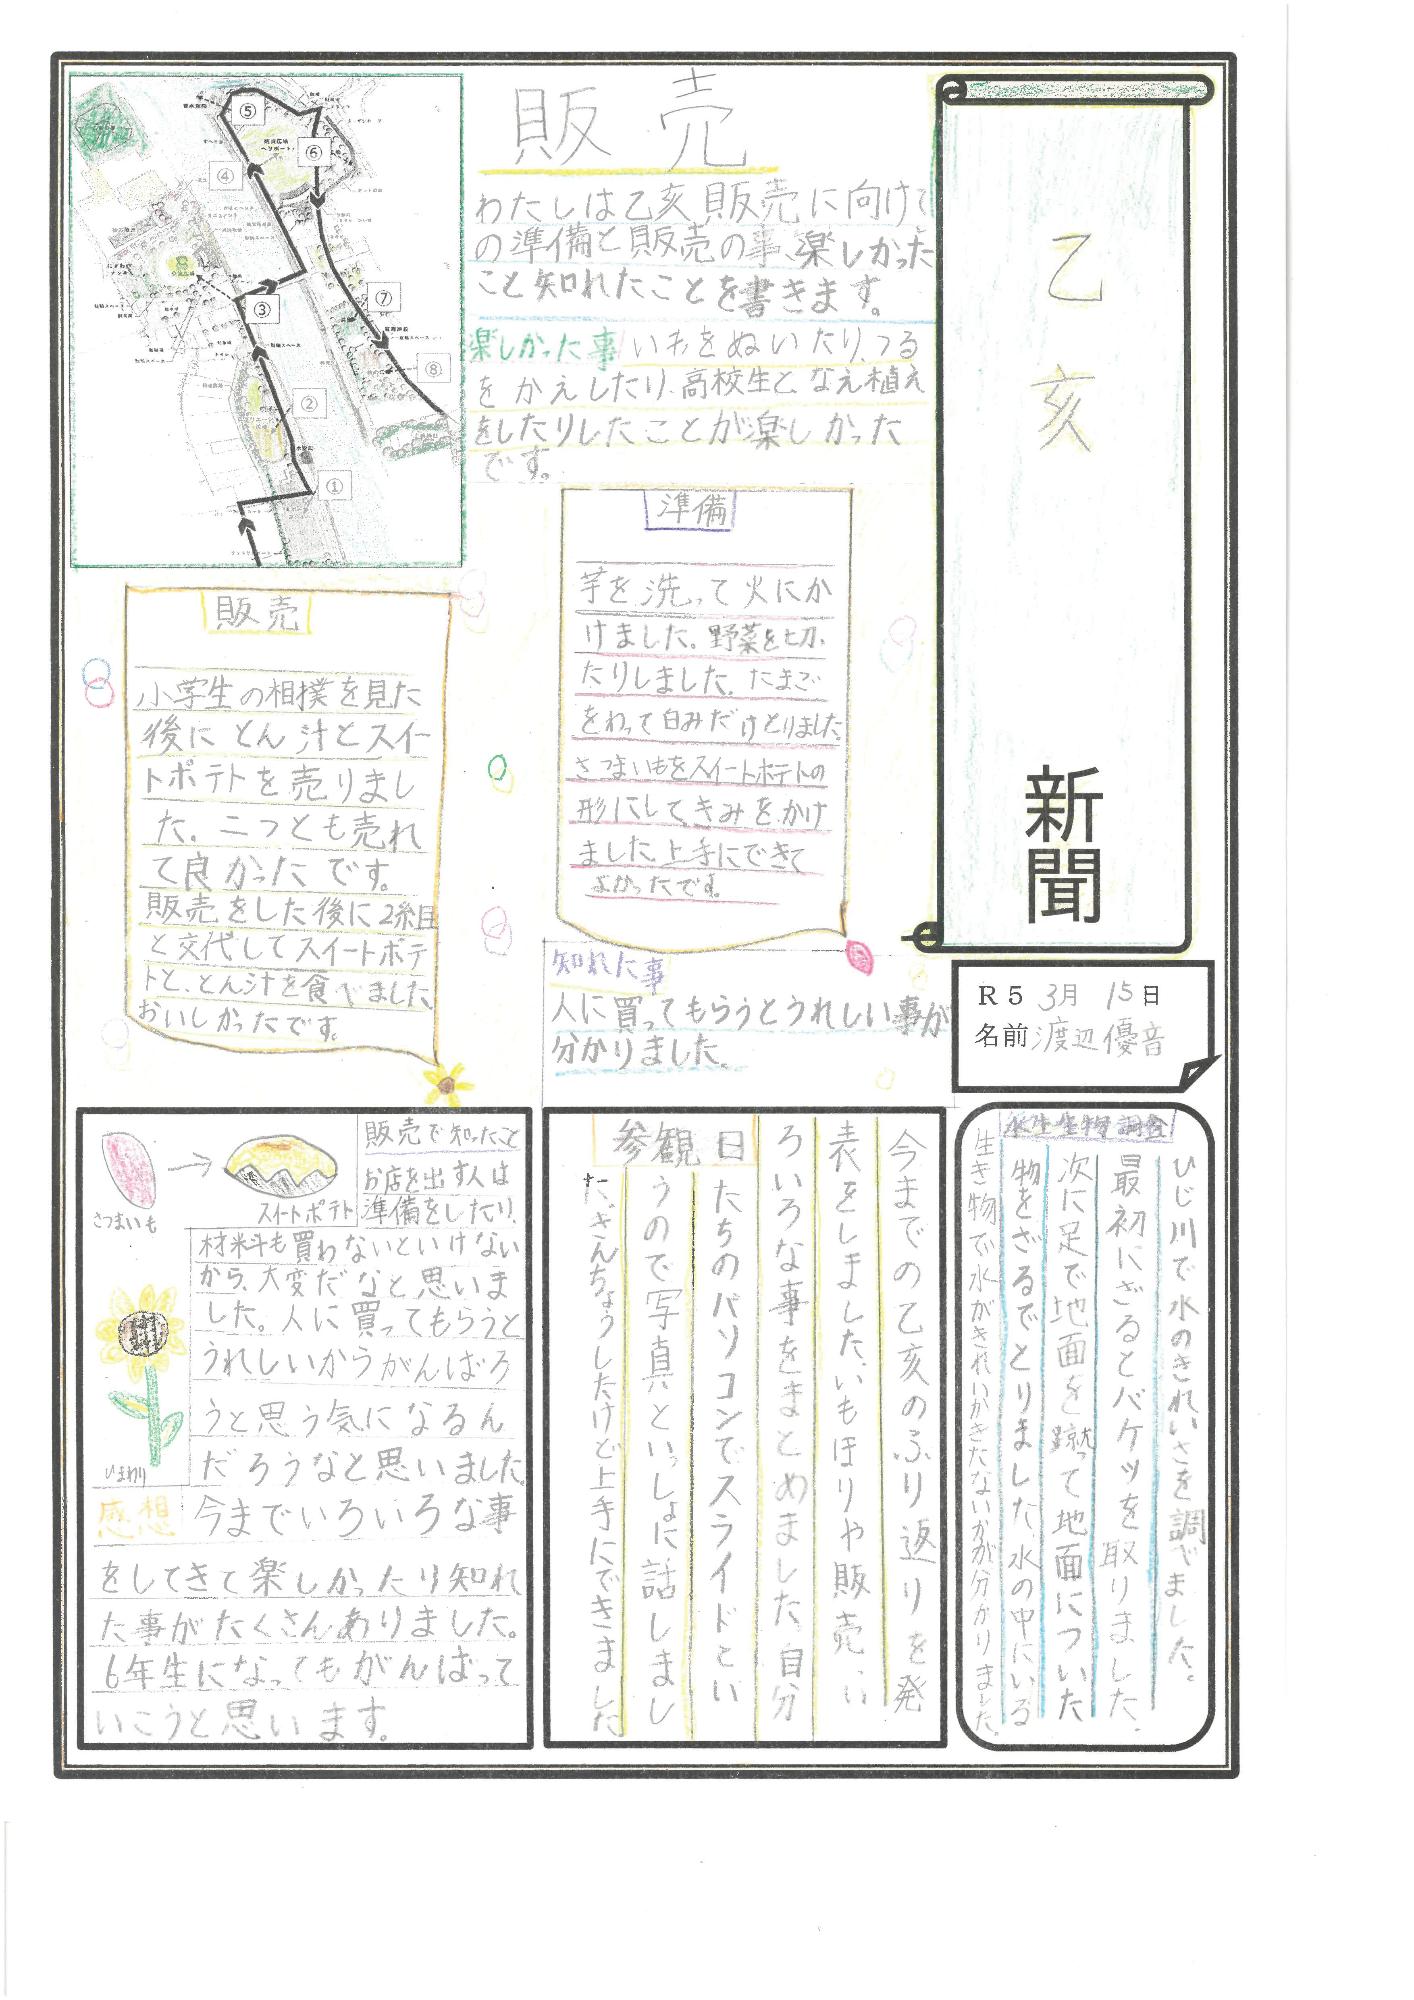 乙亥
新聞
R5 3月 15日
名前 渡辺優音
販売
わたしは乙亥販売に向けて
の準備と販売の事、楽しかった
こと知れたことを書きます。
楽しかった事 いもをぬいたり、つる
をかえしたり、高校生となえ植え
をしたりしたことが楽しかった
です。
①
②
③
④
⑤
⑥
⑦
⑧
準備
芋を洗って火にか
けました。野菜を切っ
たりしました。たまご
をわって白みだけとりました。
さつまいもをスイートポテトの
形にして、きみをかけ
ました。上手にできて
よかったです。
販売
小学生の相撲を見た
後にとん汁とスイー
トポテトを売りまし
た。二つとも売れ
て良かったです。
販売をした後に2組目
と交代してスイートポテ
トと、とん汁を食べました。
おいしかったです。
知れた事
人に買ってもらうとうれしい事が
分かりました。
水生生物調査
ひじ川で水のきれいさを調べました。
最初にざるとバケツを取りました。
次に足で地面を蹴って地面についた
物をざるでとりました。水の中にいる
生き物で水がきれいかきたないかが分かりました。
参観日
今までの乙亥のふり返りを発
表をしました。いもほりや販売、い
ろいろな事をまとめました。自分
たちのパソコンでスライドとい
うので写真といっしょに話しまし
た。きんちょうしたけど上手にできました
さつまいも
スイートポテト
ひまわり
販売で知ったこと
お店を出す人は
準備をしたり、
材料も買わないといけない
から、大変だなと思いま
した。人に買ってもらうと
うれしいからがんばろ
うと思う気になるん
だろうなと思いました。
感想 今までいろいろな事
をしてきて楽しかったり知れ
た事がたくさんありました。
6年生になってもがんばって
いこうと思います。